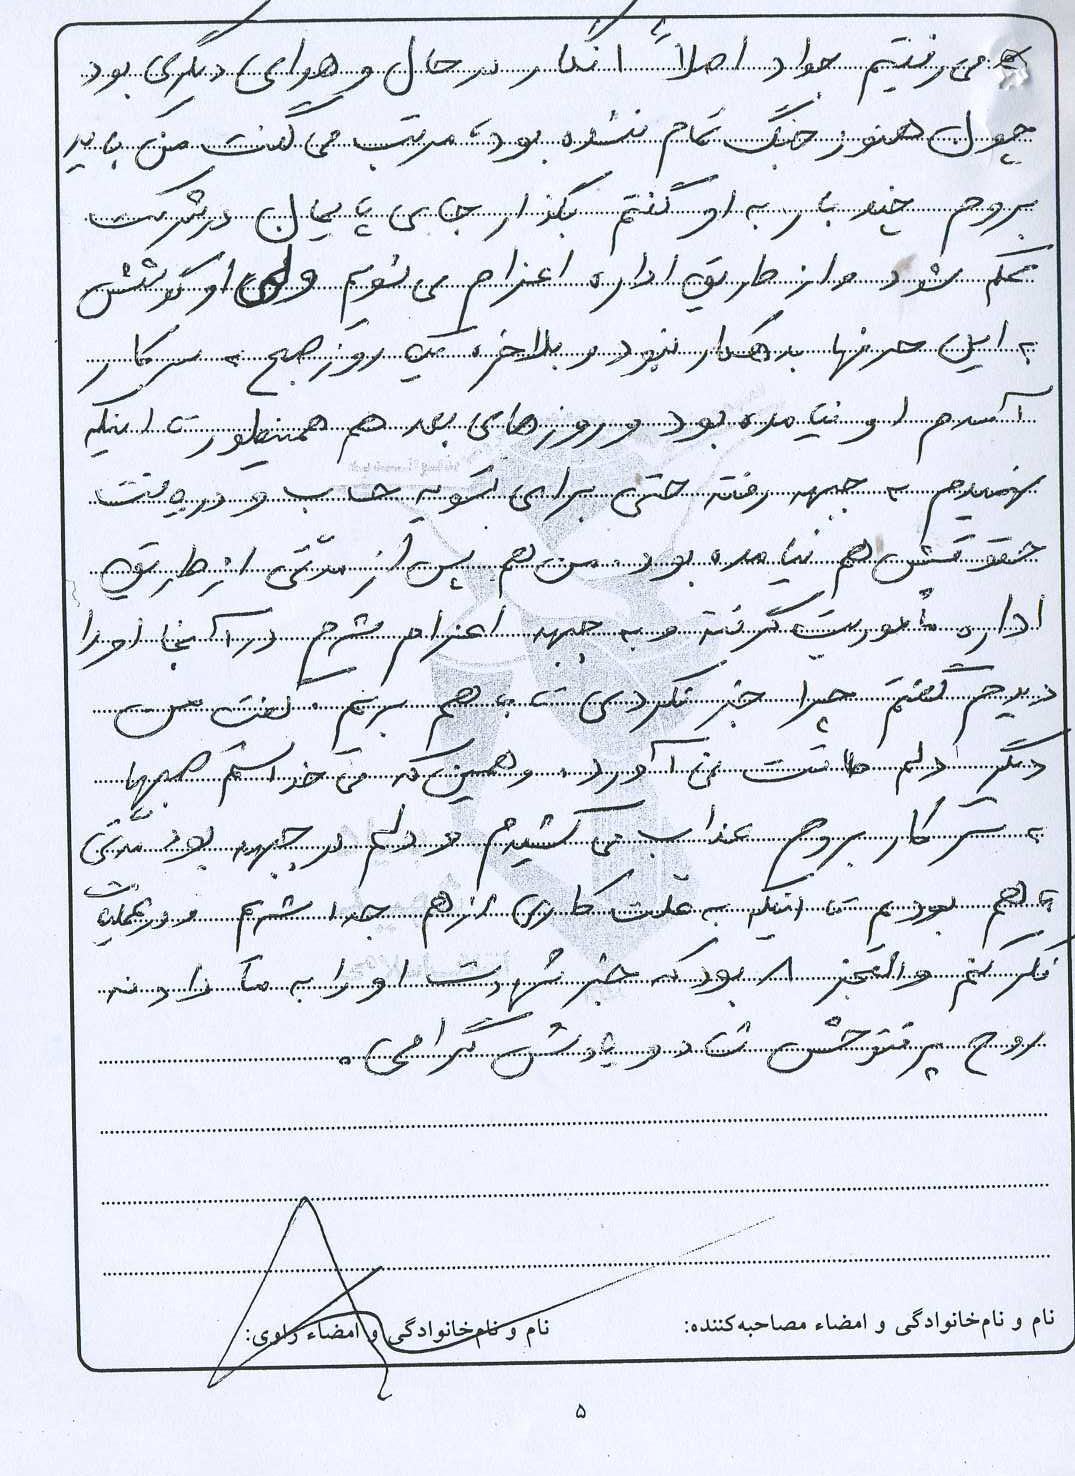 می رفتیم جواد اصلاً انگار در حال و هوای دیگری بود
چون هنوز جنگ تمام نشده بود، مرتب می گفت من باید
بروم چند بار به او گفتم بگذار جای پایمان در شرکت
محکم شود و از طریق اداره اعزام می شویم ولی او گوشش
به این حرفها بدهکار نبود و بلاخره یک روز صبح به سرکار
آمدم او نیامده بود و روزهای بعد هم همینطور تا اینکه
فهمیدیم به جبهه رفته حتی برای تسویه حساب و دریافت
حقوقش هم نیامده بود. من هم پس از مدتی از طریق
اداره مأموریت گرفته و به جبهه اعزام شدم در آنجا او را
دیدم گفتم چرا خبر نکردی تا با هم برویم. گفت من
دیگر دلم طاقت نمی آورد. و همین که می خواستم صبحها
به سر کار بروم عذاب می کشیدم و دلم در جبهه بود مدتی
با هم بودیم تا اینکه به علت کاری از هم جدا شدیم و در عملیات
فکر کنم والفجر ۸ بود که خبر شهادت او را به ما دادند
روح پرفتوحش شاد و یادش گرامی.
نام و نام‌خانوادگی و امضاء مصاحبه‌کننده: نام و نام‌خانوادگی و امضاء راوی:
۵